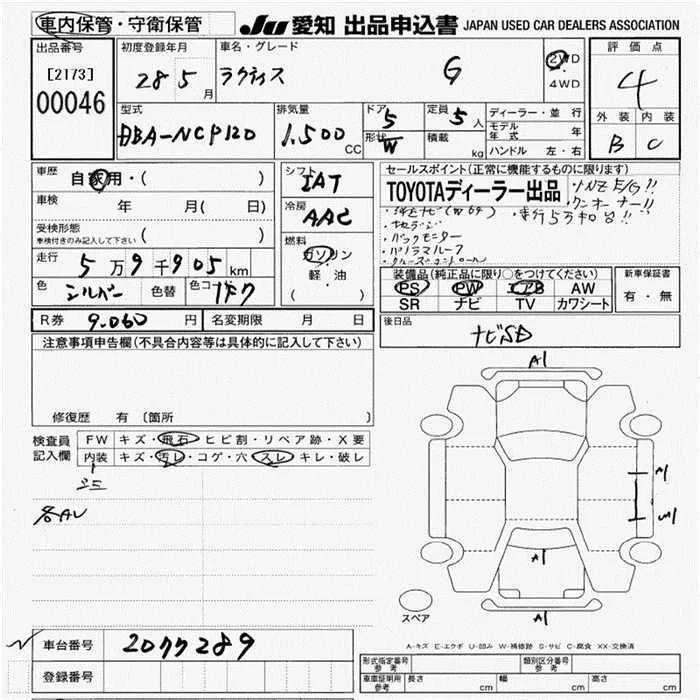 車内保管・守衛保管 JU 愛知 出品申込書 JAPAN USED CAR DEALERS ASSOCIATION
出品番号 初度登録年月 車名・グレード 2WD 評価点
[2173] 28 5 月 ラクティス G 4WD 4
00046
型式 排気量 ドア 5 定員 5 人 ディーラー・並行 外装 内装
DBA-NCP120 1.500 CC 形状 W 積載 kg モデル年式 年 B C
ハンドル 左・右
車歴 自家用・( ) シフト IAT セールスポイント(正常に機能するものに限ります)
車検 年 月( 日) 冷房 AAC TOYOTAディーラー出品 ・1NZ E/G!!
・ワンオーナー!!
・純正ナビ(W64) ・走行5万km台!!
・地デジ
受検形態 車検付きのみ記入して下さい ( ) 燃料 ガソリン ・バックモニター
・パノラマルーフ
走行 5万9千905km 軽・油 ・クルーズコントロール
( ) 装備品(純正品に限り○をつけてください) 新車保証書
色 シルバー 色替 色コード 1F7 PS PW エアB AW 有・無
SR ナビ TV カワシート
R券 9.060 円 名変期限 月 日 後日品
ナビSD
注意事項申告欄(不具合内容等は具体的に記入して下さい)
A1
修復歴 有 〔箇所 〕
検査員記入欄 FW キズ・飛石・ヒビ割・リペア跡・X要
内装 キズ・汚レ・コゲ・穴・スレ・キレ・破レ
A1
シミ
各AU
A1
A1
スペア
A-キズ E-エクボ U-凹み W-補修跡 S-サビ C-腐食 XX-交換済
車台番号 2077289
登録番号
形式指定番号 参考 類別区分番号 参考
車庫証明用 参考 長さ cm 幅 cm 高さ cm